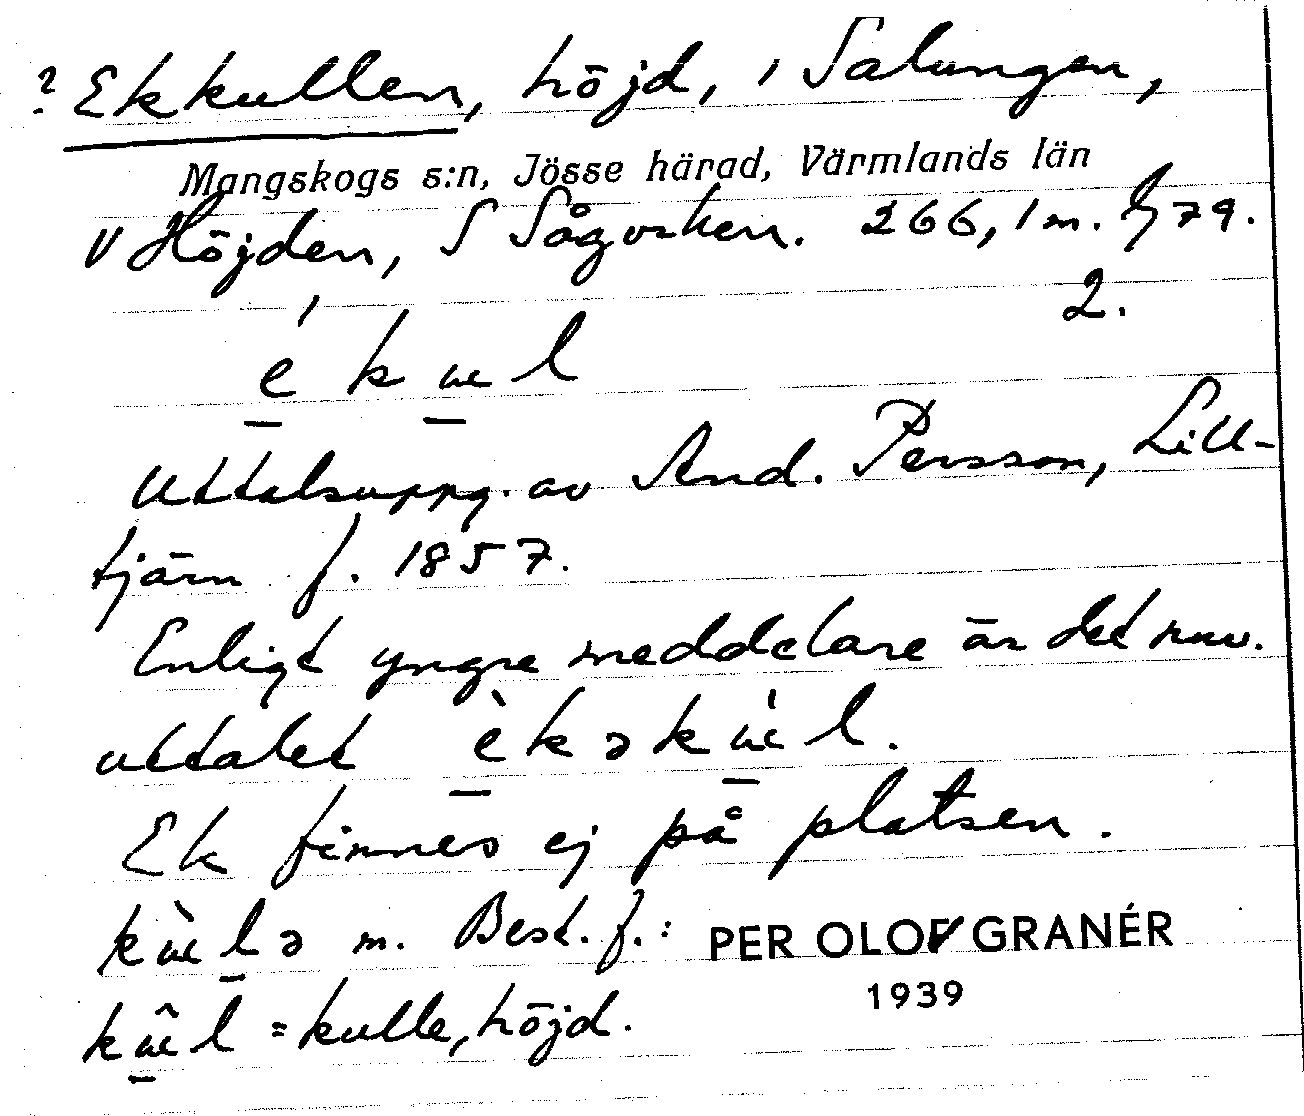 ? Ekkullen, höjd, i Salungen,
Mangskogs s:n, Jösse härad, Värmlands län
V Höjden, S Sågvrken. 266,1 m. Hj 79.
2.
é k u l
Uttalsuppg. av And. Persson, Lill-
tjärn f. 1857.
Enligt yngre meddelare är det nuv.
uttalet è k ə k u l.
Ek finnes ej på platsen.
m. Best. f.: PER OLOF GRANÉR
1939
= kulle, höjd.